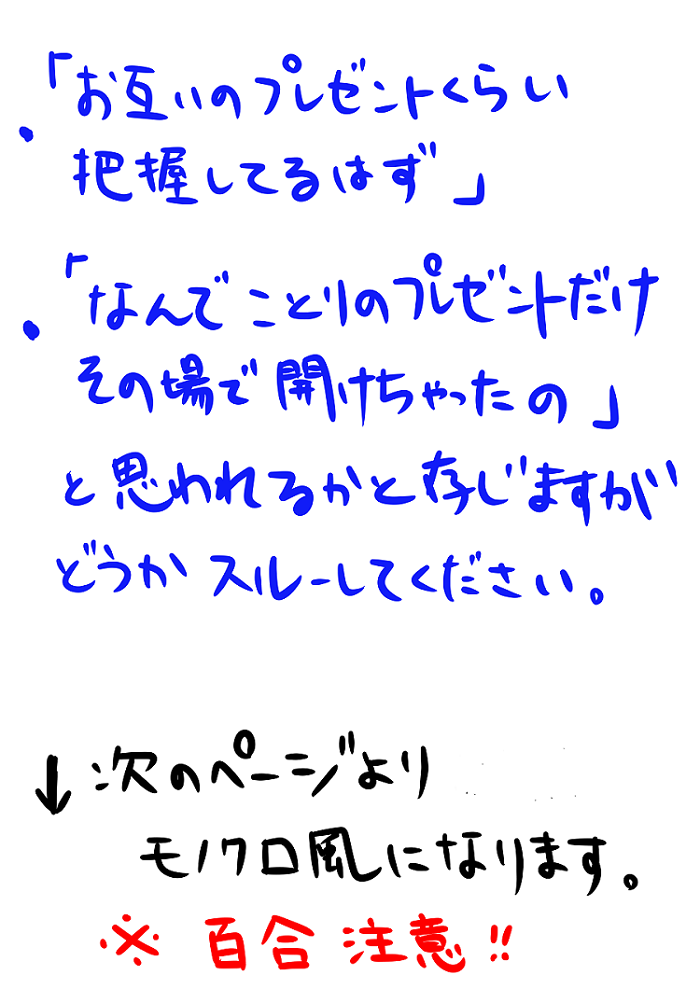 ・「お互いのプレゼントくらい
把握してるはず」
・「なんでことりのプレゼントだけ
その場で開けちゃったの」
と思われるかと存じますが
どうかスルーしてください。
↓次のページより
モノクロ風になります。
※百合注意!!